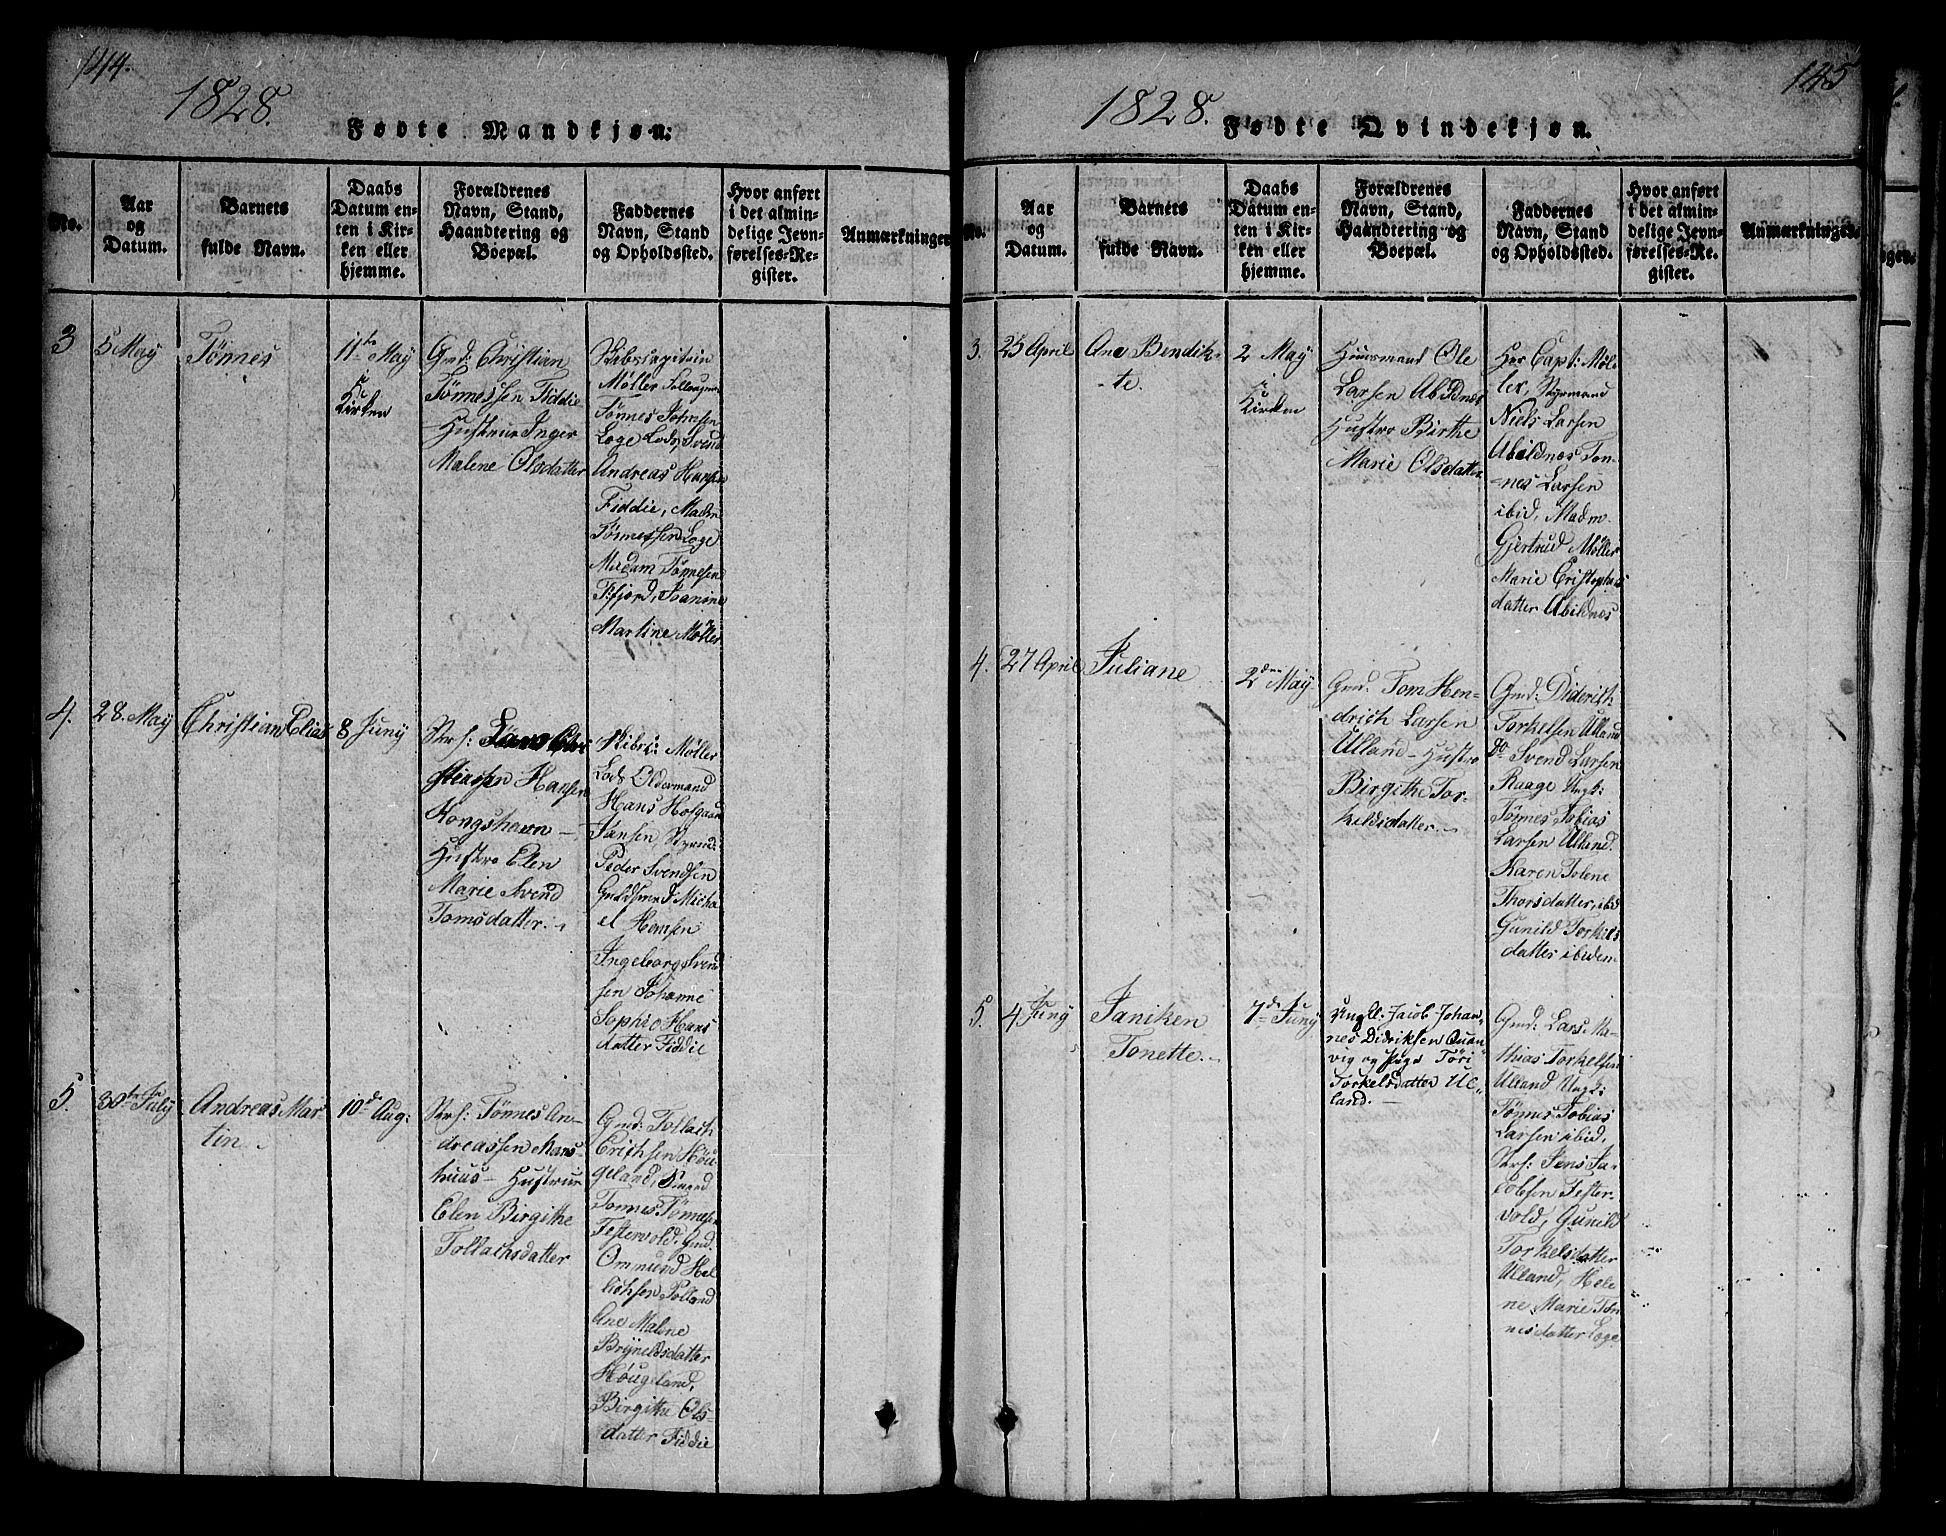 144.
1828.
Fødte Mandkjøn:
No.
Aar
og
Datum.
Barnets
fulde Navn.
Daabs
Datum en-
ten i Kir-
ken eller
hjemme.
Forældrenes
Navn, Stand,
Haandtering og
Boepæl.
Faddernes
Navn, Stand
og Opholdssted.
Hvor anført
i det almin-
delige Jevn-
førelses-Re-
gister.
Anmærkninger
3
5 May
Tønnes
11te May
i
Kirken
Gmd: Christian
Tønnessen Fiddie
Hustrue Inger
Malene Olsdatter
Møller
Tønnes Johnsen
Loge Lods, Svend
Andreas Hansen
Fiddie, Madm
Tønnessen Loge
Madam Tønnesen
Joanine
Martine Møller
4.
28. May
Christian Elias
8 Juny
Hansen
Kongshavn –
Hustro Elen
Marie Svend
Tomsdatter.
Skibs: Møller
Lods Oldermand
Hans
Jansen Styrmd:
Peder Svendsen
Guldsmed Micha
el Hemsen
Ingeborg Svend
sen Johanne
Sophie Hans
datter Fiddie
5.
30te July
Andreas Mar
tin.
10de Aug:
Tønnes An-
dreassen
huus – Hustrue
Elen Birgithe
Tollachsdatter
Gmd: Tollach
Erichsen Høu
geland,
Tønnes Tønnesen
Festervold, Gmd.
Ommund
Ane Malene
Brÿnildsdatter
Høugeland,
Birgithe Ols
datter Fiddie
145
1828.
Fødte Qvindekjøn.
No.
Aar
og
Datum.
Barnets
fulde Navn.
Daabs
Datum en-
ten i Kir-
ken eller
hjemme.
Forældrenes
Navn, Stand,
Haandtering og
Boepæl.
Faddernes
Navn, Stand
og Opholdssted.
Hvor anført
i det almin-
delige Jevn-
førelses-Re-
gister.
Anmærkninger.
3.
25 April
Ane Bendik-
-te.
2 May
i
Kirken
Huusmand Ole
Larsen Abildnes
Hustro Birthe
Marie Olsdatter
Her Capt: Møl-
ler, Styrmand
Niels Larsen
Abildnes Ton-
nes Larsen
ibid, Madm.
Gjertrud Møller
Marie Cristophers
datter Abildnes
4.
27 April
Juliane
2den May
Gmd: Tom Hen-
drich Larsen
Ulland – Hustro
Birgithe Tor-
kelsdatter.
Gmd: Diderich
Torkelsen Ulland
Do Svend Larsen
Raage Ungk:
Tønnes Tobias
Larsen Ulland.
Karen Tolene
Thorsdatter, ibid
Gunild Torkels
datter ibidem
5.
4 Juny
Janiken
Tonette.
7de Juny
Ungk: Jacob Johan-
nes Didriksen Quan
vig og Pige Töri
Torkelsdatter Ul-
land. –
Gmd: Lars Ma-
thias Torkelsen
Ulland Ungk:
Tønnes Tobias
Larsen ibid,
Jens Ja-
cobsen Fester-
vold, Gunild
Torkelsdatter
Ulland, Hele
ne Marie Tøn
nesdatter Loge